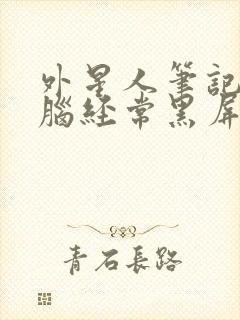 外星人筆記
腦經常黑屏
青石長路